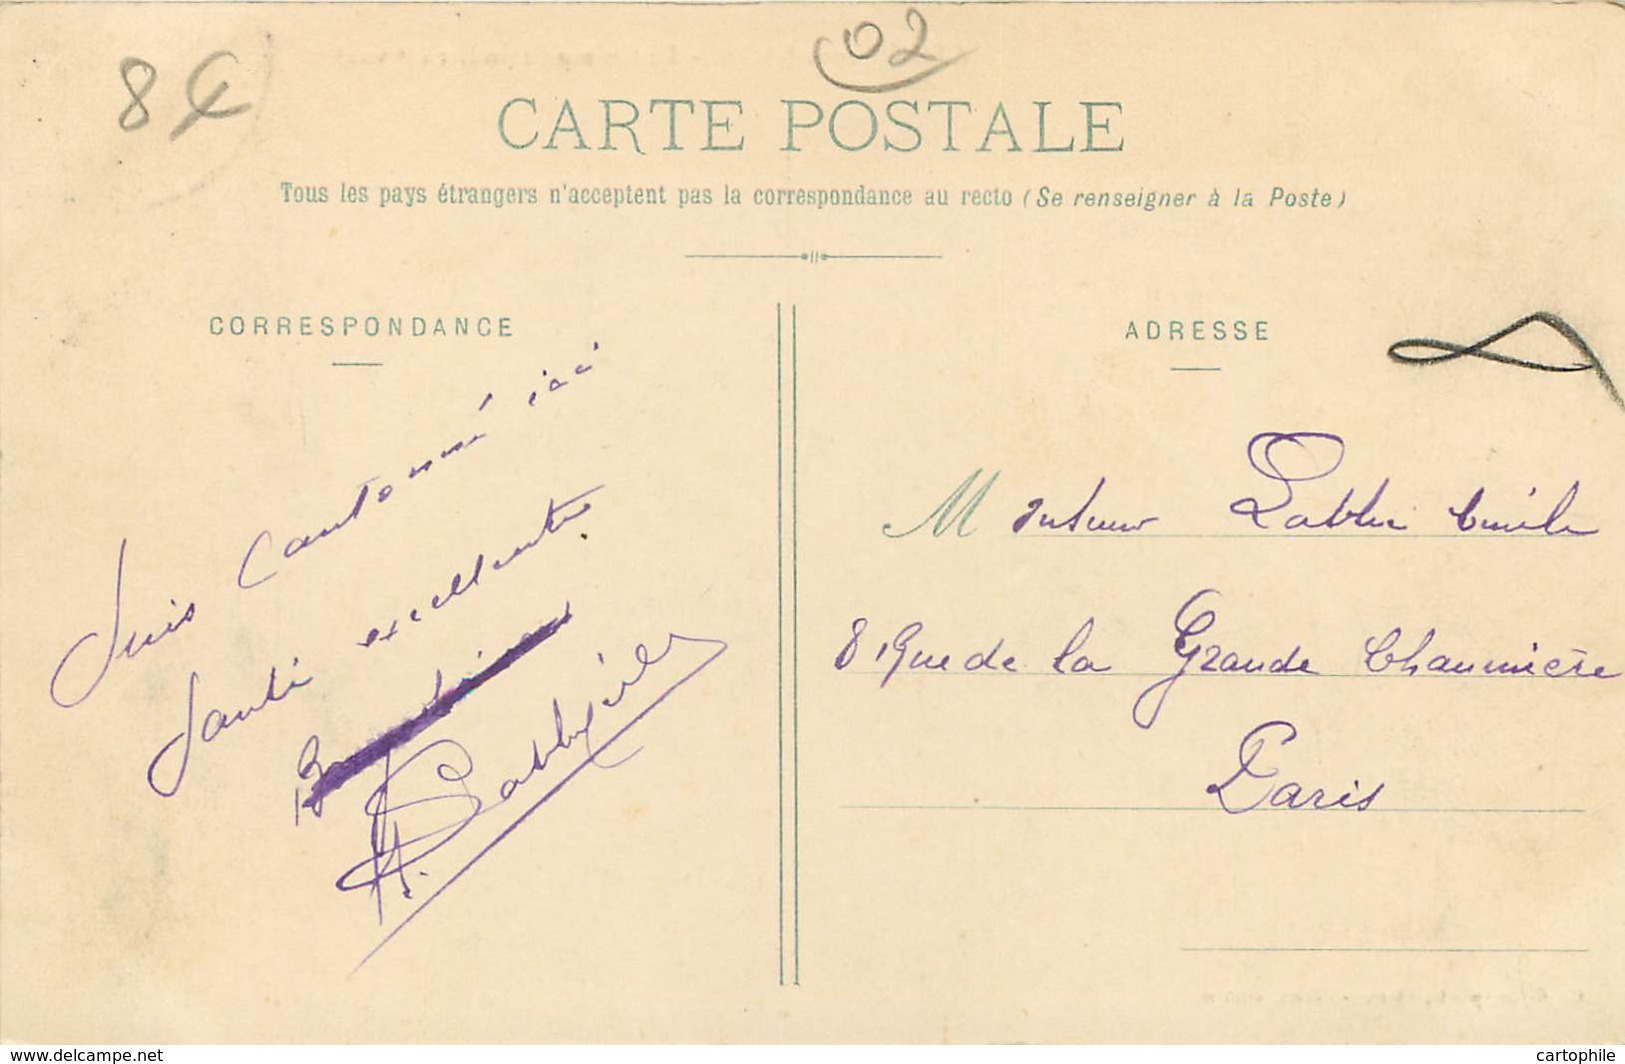 8€
02
CARTE POSTALE
Tous les pays étrangers n'acceptent pas la correspondance au recto (Se renseigner à la Poste)
CORRESPONDANCE
Suis Cantonné ici
Santé excellente.
A.
ADRESSE
Monsieur Emile
8 Rue de la Grande Chaumière
Paris
www.delcampe.net
cartophile